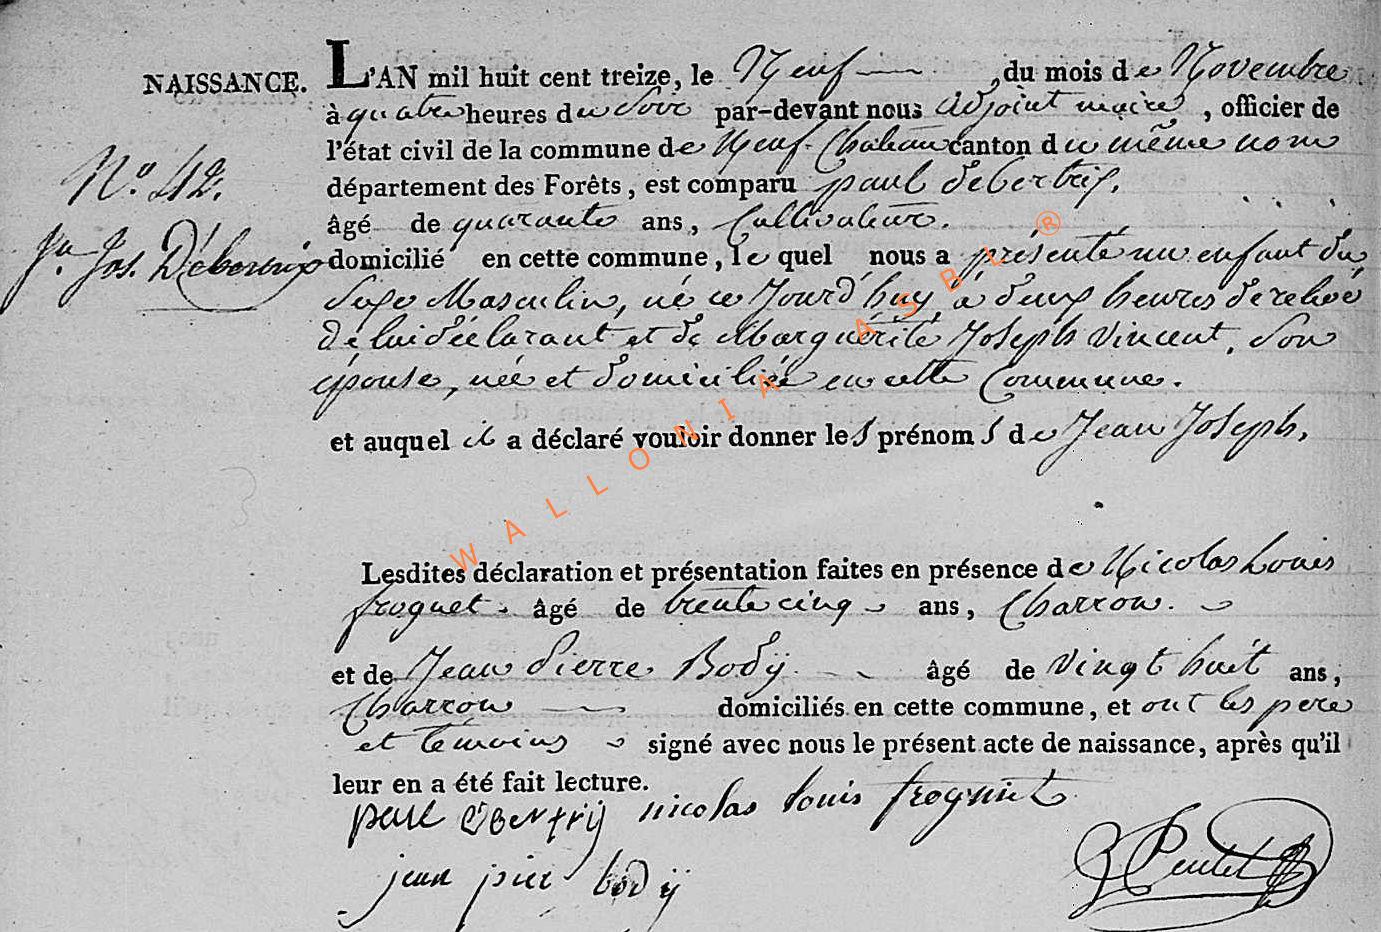 NAISSANCE. L'AN mil huit cent treize, le Neuf, du mois de Novembre
à quatre heures du Soir par-devant nous adjoint maire, officier de
l'état civil de la commune de Neuf-Chateau canton du même nom
N.o 42.
département des Forêts, est comparu paul debertrij.
âgé de quarante ans, Cultivateur.
Jn. Jos. Débertrij
domicilié en cette commune, le quel nous a présenté un enfant du
Sexe Masculin, né ce Jourd'huy, à deux heures de relevé
de lui déclarant et de Marguérite Joseph Vincent, Son
épouse, née et domiciliée en cette Commune.
et auquel il a déclaré vouloir donner les prénoms de Jean Joseph,
Lesdites déclaration et présentation faites en présence de Nicolas Louis
froguet. âgé de trente cinq ans, Charron.
et de Jean Pierre Bodij âgé de Vingt huit ans,
Charron domiciliés en cette commune, et ont les pere
et temoins signé avec nous le présent acte de naissance, après qu'il
leur en a été fait lecture.
paul debertrij nicolas louis froguet
jean pier bodij
WALLONIA ASBL ®